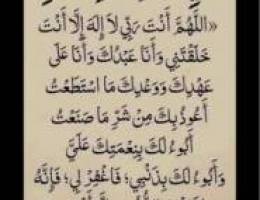 «اللَّهُمَّ أَنْتَ رَبِّي لاَ إِلَهَ إِلاَّ أَنْتَ
خَلَقْتَنِي وَأَنَا عَبْدُكَ وَأَنَا عَلَى
عَهْدِكَ وَوَعْدِكَ مَا اسْتَطَعْتُ
أَعُوذُ بِكَ مِنْ شَرِّ مَا صَنَعْتُ
أَبُوءُ لَكَ بِنِعْمَتِكَ عَلَيَّ
وَأَبُوءُ لَكَ بِذَنْبِي؛ فَاغْفِرْ لِي؛ فَإِنَّهُ